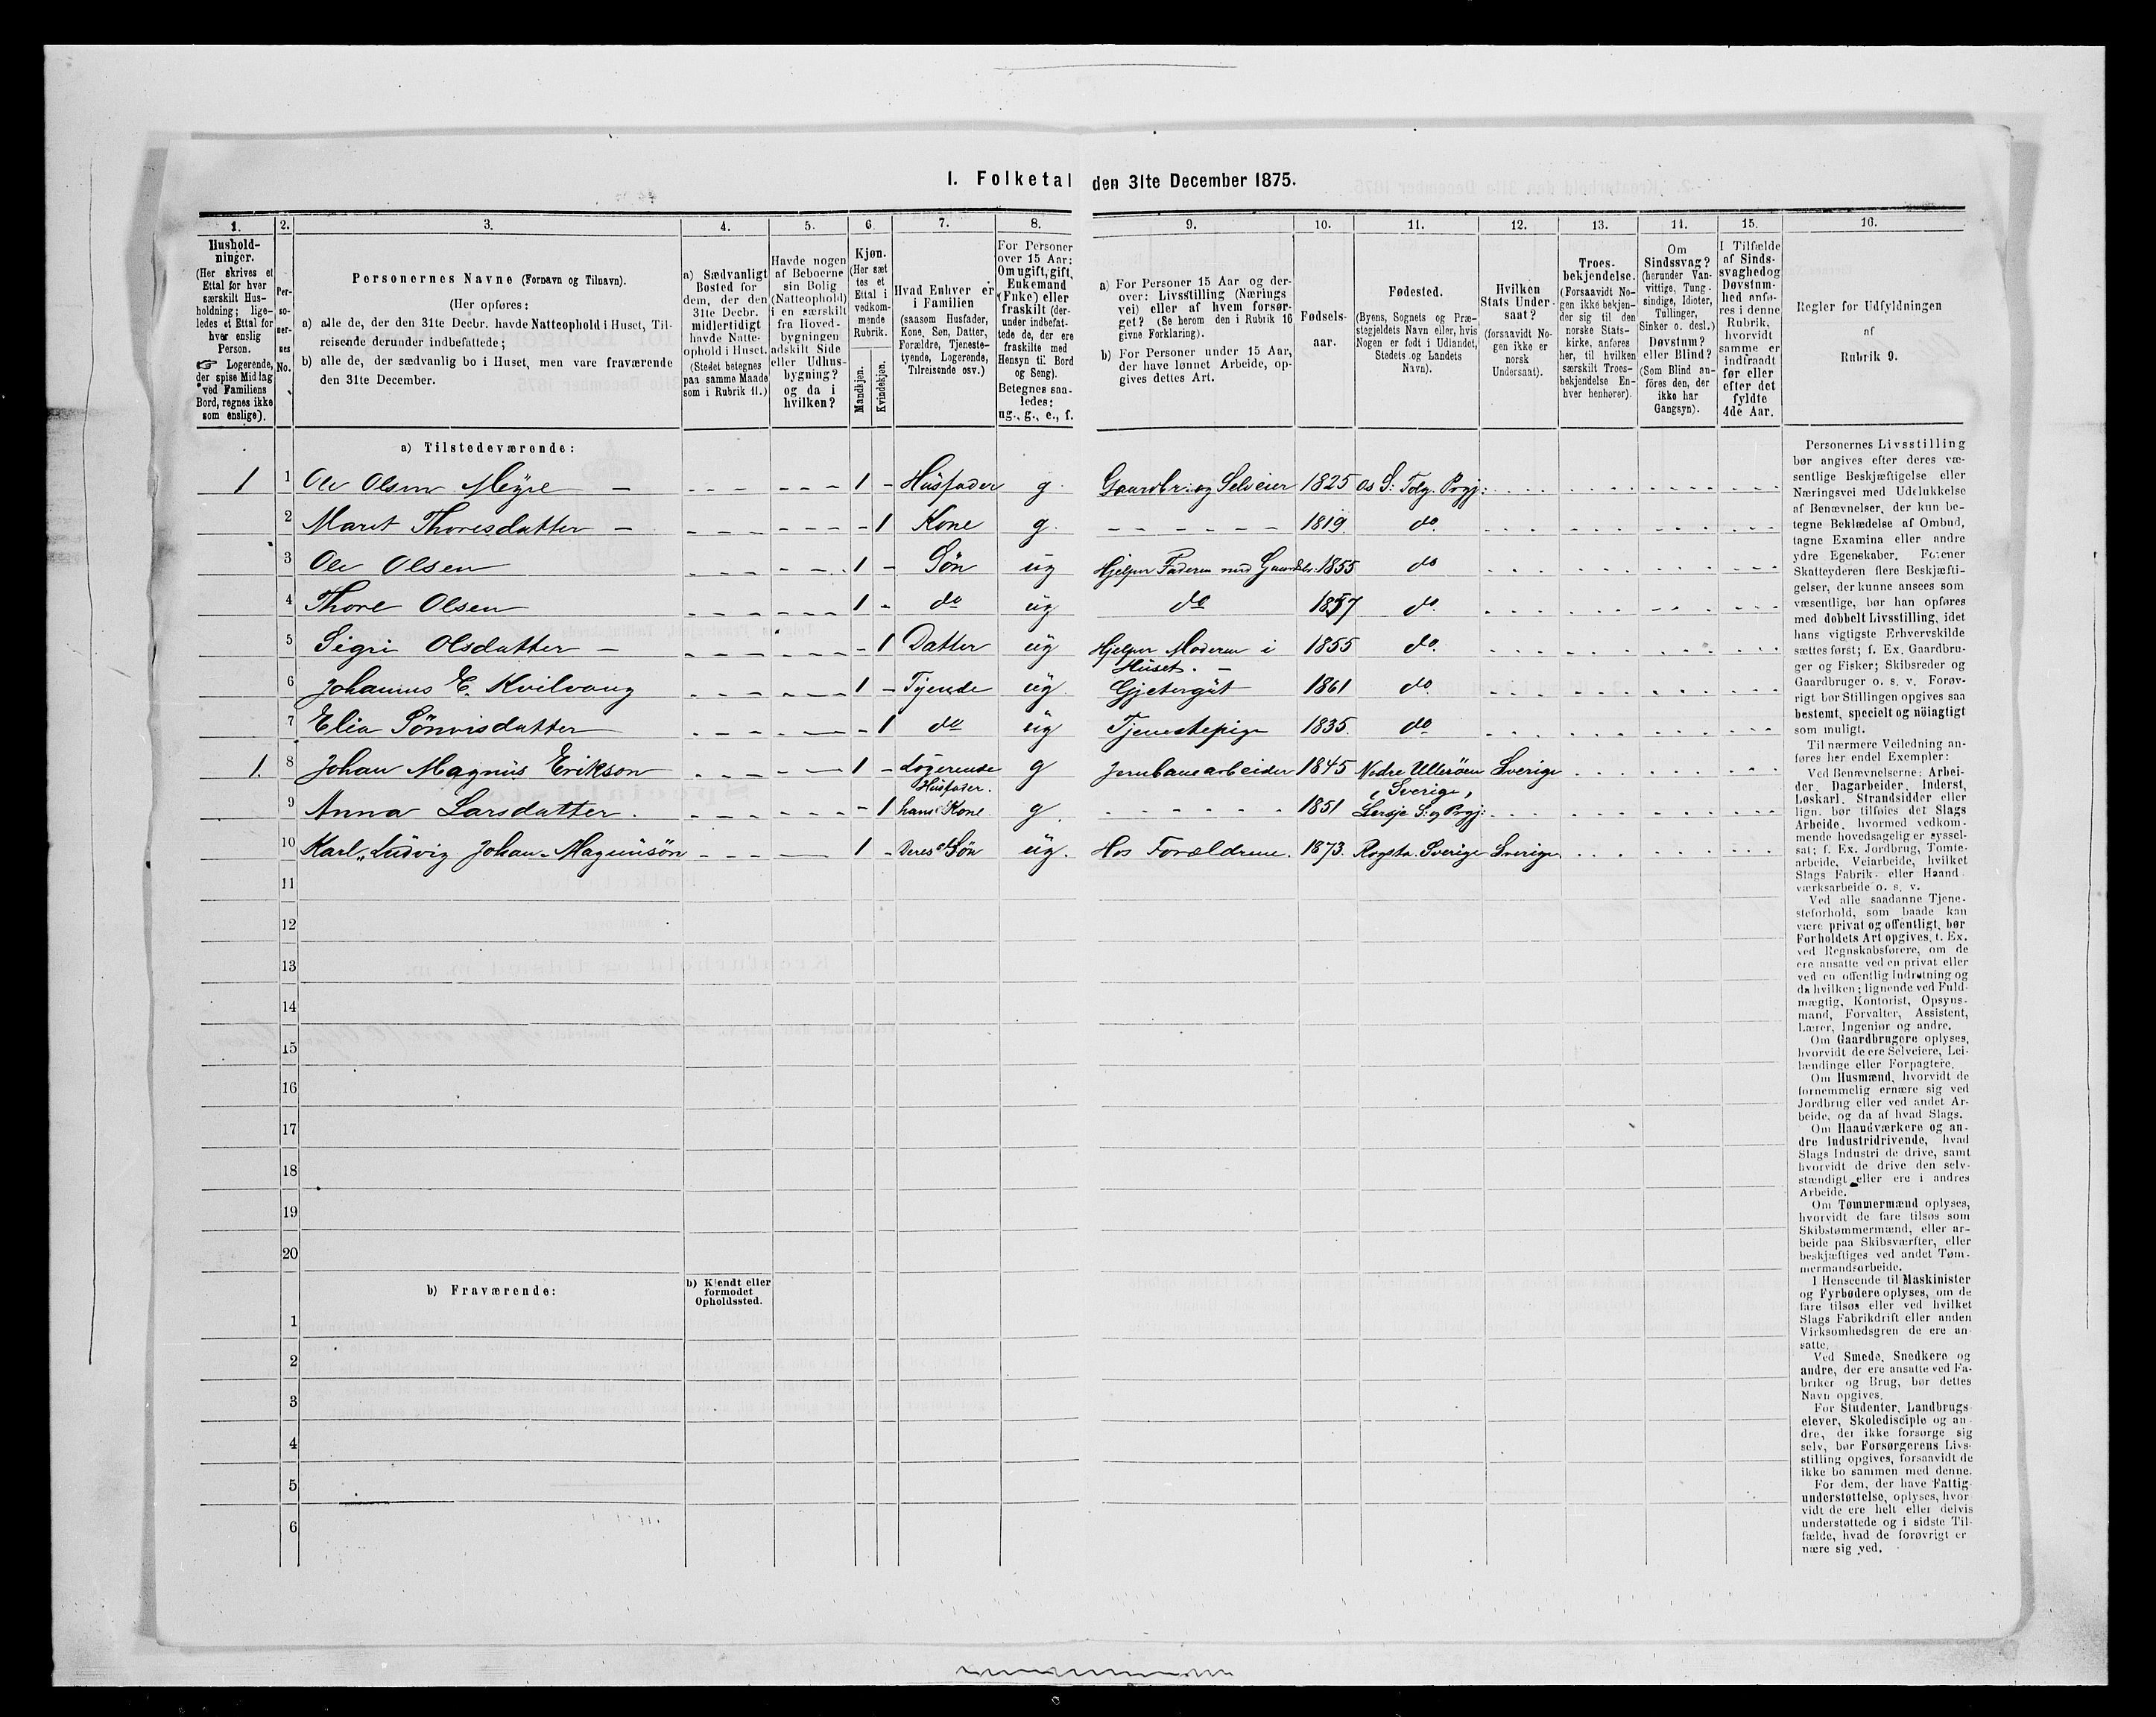 I. Folketal den 31te December 1875.
1. 2. 3. 4. 5. 6. 7. 8. 9. 10. 11. 12. 13. 11. 15. 16.
Hushold-
ninger.
(Her skrives et
Ettal for hver
særskilt Hus-
holdning; lige-
ledes et Ettal for
hver enslig
Person.
☞ Logerende,
der spise Middag
ved Familiens
Bord, regnes ikke
som enslige).
Per-
so-
ner-
nes
No.
Personernes Navne (Fornavn og Tilnavn).
(Her opføres:
a) alle de, der den 31te Decbr. havde Natteophold i Huset, Til-
reisende derunder indbefattede;
b) alle de, der sædvanlig bo i Huset, men vare fraværende
den 31te December.
a) Sædvanligt
Bosted for
dem, der den
31te Decbr.
midlertidigt
havde Natte-
ophold i Huset.
(Stedet betegnes
paa samme Maade
som i Rubrik 11.)
Havde nogen
af Beboerne
sin Bolig
(Natteophold)
i en særskilt
fra Hoved-
bygningen
adskilt Side
eller Udhus-
bygning?
og da i
hvilken?
Kjøn.
(Her sæt
tes et
Ettal i
vedkom-
mende
Rubrik.
Mandkjøn.
Kvindekjøn.
Hvad Enhver er
i Familien
(saasom Husfader,
Kone, Søn, Datter,
Forældre, Tjeneste-
tyende, Logerende,
Tilreisende osv.)
For Personer
over 15 Aar:
Om ugift, gift,
Enkemand
(Enke) eller
fraskilt (der-
under indbefat-
tede de, der ere
fraskilte med
Hensyn til Bord
og Seng).
Betegnes saa-
ledes:
ug., g., e., f.
a) For Personer 15 Aar og der-
over: Livsstilling (Nærings
vei) eller af hvem forsør-
get? (Se herom den i Rubrik 16
givne Forklaring).
b) For Personer under 15 Aar,
der have lønnet Arbeide, op-
gives dettes Art.
Fødsels-
aar.
Fødested.
(Byens, Sognets og Præ-
stegjeldets Navn eller, hvis
Nogen er født i Udlandet,
Stedets og Landets
Navn).
Hvilken
Stats Under-
saat?
(forsaavidt No-
gen ikke er
norsk
Undersaat).
Troes-
bekjendelse.
(Forsaavidt No-
gen ikke bekjen-
der sig til den
norske Stats-
kirke, anføres
her, til hvilken
særskilt Troes-
bekjendelse En-
hver henhører).
Om
Sindssvag?
(herunder Van-
vittige, Tung-
sindige, Idioter,
Tullinger,
Sinker o. desl.)
Døvstum?
eller Blind?
(Som Blind an-
føres den, der
ikke har
Gangsyn).
I Tilfælde
af Sinds-
svaghed og
Døvstum-
hed anfø-
res i denne
Rubrik,
hvorvidt
samme er
indtraadt
før eller
efter det
fyldte
4de Aar.
Regler for Udfyldningen
af
Rubrik 9.
a) Tilstedeværende:
1 1 Ole Olsen Meyre 1 Husfader g. Gaardbr. og Selveier 1825 Os S: Tolg. Prgj:
2 Maret Thoresdatter 1 Kone g. 1819 do.
3 Ole Olsen 1 Søn ug Hjelper Faderen med Gaardsbr. 1855 do
4 Thore Olsen 1 do ug do 1857 do.
5 Sigri Olsdatter 1 Datter ug Hjelper Moderen i Huset. 1855 do.
6 Johannes E. Kvilvang 1 Tjende ug Gjetergut 1861 do.
7 Elia Sönvisdatter 1 do ug Tjenestepige 1835. do
1. 8 Johan Magnus Erikson 1 Logerende Husfader. g Jernbanearbeider 1845 Nedre Ulleröen Sverige, Sverige
9 Anna Larsdatter. 1 hans Kone g. 1851 Lersje S: og Prgj:
10 Karl Ludvig Johan-Magnusön 1 Deres Søn ug. Hos Forældrene. 1873. Rogsta. Sverige Sverige.
11
12
13
14
15
16
17
18
19
20
b) Fraværende:
b) Kjendt eller
formodet
Opholdssted.
1
2
3
4
5
6
Personernes Livsstilling
bør angives efter deres væ-
sentlige Beskjæftigelse eller
Næringsvei med Udelukkelse
af Benævnelser, der kun be-
tegne Beklædelse af Ombud,
tagne Examina eller andre
ydre Egenskaber. Forener
Skatteyderen flere Beskjæfti-
gelser, der kunne ansees som
væsentlige, bør han opføres
med dobbelt Livsstilling, idet
hans vigtigste Erhvervskilde
sættes først; f. Ex. Gaardbru-
ger og Fisker; Skibsreder og
Gaardbruger o. s. v. Forøv-
rigt bør Stillingen opgives saa
bestemt, specielt og nöiagtigt
som muligt.
Til nærmere Veiledning an-
føres her endel Exempler:
Ved Benævnelserne: Arbei-
der, Dagarbeider, Inderst,
Løskarl, Strandsidder eller
lign. bør tilføies det Slags
Arbeide, hvormed vedkom-
mende hovedsagelig er syssel-
sat; f. Ex. Jordbrug, Tomte-
arbeide, Veiarbeide, hvilket
Slags Fabrik- eller Haand-
værksarbeide o. s. v.
Ved alle saadanne Tjene-
steforhold, som baade kan
være privat og offentligt, bør
Forholdets Art opgives, f. Ex.
ved Regnskabsførere, om de
ere ansatte ved en privat eller
ved en offentlig Indretning og
da hvilken; lignende ved Fuld-
mægtig, Kontorist, Opsyns-
mand, Forvalter, Assistent,
Lærer, Ingeniør og andre.
Om Gaardbrugere oplyses,
hvorvidt de ere Selveiere, Lei-
lændinge eller Forpagtere.
Om Husmænd, hvorvidt de
fornemmelig ernære sig ved
Jordbrug eller ved andet Ar-
beide, og da af hvad Slags.
Om Haandværkere og an-
dre Industridrivende, hvad
Slags Industri de drive, samt
hvorvidt de drive den selv-
stændigt eller ere i andres
Arbeide.
Om Tømmermænd oplyses,
hvorvidt de fare tilsøs som
Skibstømmermænd, eller ar-
beide paa Skibsværfter, eller
beskjæftiges ved andet Tøm-
mermandsarbeide.
I Henseende til Maskinister
og Fyrbødere oplyses, om de
fare tilsøs eller ved hvilket
Slags Fabrikdrift eller anden
Virksomhedsgren de ere an-
satte.
Ved Smede, Snedkere og
andre, der ere ansatte ved Fa-
briker og Brug, bør dettes
Navn opgives.
For Studenter, Landbrugs-
elever, Skoledisciple og an-
dre, der ikke forsørge sig
selv, bør Forsørgerens Livs-
stilling opgives, forsaavidt de
ikke bo sammen med denne.
For dem, der have Fattig-
understøttelse, oplyses, hvor
vidt de ere helt eller delvis
understøttede og i sidste Til-
fælde, hvad de forøvrigt er
nære sig ved.